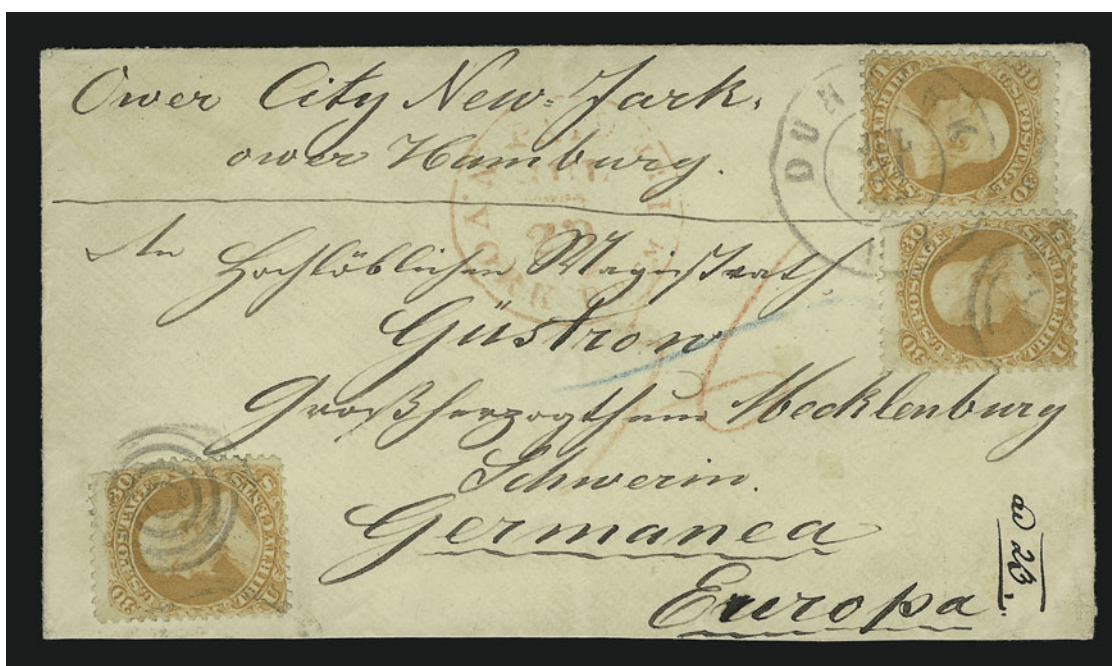 Ower City New-Jark.
ower Hamburg.
An
Hochlöblichen Magistrath.
Güstrow
Großherzogthum Mecklenburg
Schwerin.
Germanea
Europa
U.S. POSTAGE
THIRTY CENTS
30
30
U.S. POSTAGE
THIRTY CENTS
30
30
U.S. POSTAGE
THIRTY CENTS
30
30